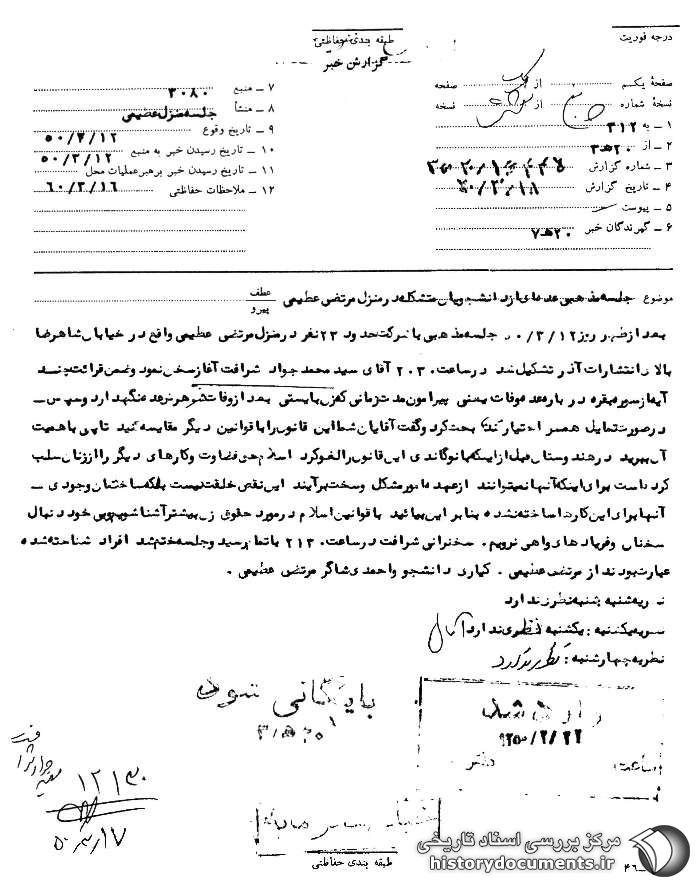 درجه فوریت
طبقه بندی حفاظتی
گزارش خبر
صفحهٔ یکم از یک صفحه
نسخهٔ شماره از نسخه
۱ ــ به ۳۱۲
۲ ــ از ۲۰ﻫ۳
۳ ــ شماره گزارش
۴ ــ تاریخ گزارش
۵ ــ پیوست
۶ ــ گیرندگان خبر ۲۰ﻫ۷
۷ ــ منبع ۳۰۸۰
۸ ــ منشأ جلسه منزل عظیمی
۹ ــ تاریخ وقوع ۵۰/۳/۱۲
۱۰ ــ تاریخ رسیدن خبر به منبع ۵۰/۳/۱۲
۱۱ ــ تاریخ رسیدن خبر برهبرعملیات محل
۱۲ ــ ملاحظات حفاظتی ۶۰/۳/۱۶
موضوع جلسه مذهبی عده‌ای از دانشجویان متشکله در منزل مرتضی عظیمی
عطف
پیرو
بعد از ظهر روز ۰/۳/۱۲ جلسه مذهبی با شرکت حدود ۲۳ نفر در منزل مرتضی عظیمی واقع در خیابان شاهرضا
بالا د انتشارات آذر تشکیل شد در ساعت ۲۰۳۰ آقای سید محمد جواد شرافت آغاز سخن نمود و ضمن قرائت چند
آیه از سوره بقره در باره عده وفات یعنی پیرامون مدت زمانی که زن بایستی بعد از وفات شوهر نزد عده نگهدارد و سپس ــ
در صورت تمایل همسر اختیار کند بحث کرد و گفت آقایان شما این قانون را با قوانین دیگر مقایسه کنید تا پی باهمیت
آن ببرید در هندوستان قبل از اینکه بانو گاندی این قانون را لغو کرد اسلام حق قضاوت و کارهای دیگر را از زنان سلب
کرده است برای اینکه آنها نمیتوانند از عهده امور مشکل و سخت برآیند این نقص خلقت نیست بلکه ساختمان وجودی ــ
آنها برای این کارها ساخته نشده بنابر این بیائید با قوانین اسلام در مورد حقوق زن بیشتر آشنا شویم و بی خود دنبال
سخنان و فریادهای واهی نرویم . سخنرانی شرافت در ساعت ۲۱۳۰ باتمام رسید و جلسه ختم شد افراد شناخته شده
عبارت بودند از مرتضی عظیمی . کیاری دانشجو و احمدی شاگر مرتضی عظیمی .
نظریه شنبه شنبه نظر ندارد
نظریه یکشنبه : یکشنبه نظری ندارد
نظریه چهارشنبه : نظری ندارد
بایگانی شود
وارد شد
ساعت دفتر
۱۲۱۳۰
۵۰/۳/۱۷
طبقه بندی حفاظتی
مرکز بررسی اسناد تاریخی
historydocuments.ir